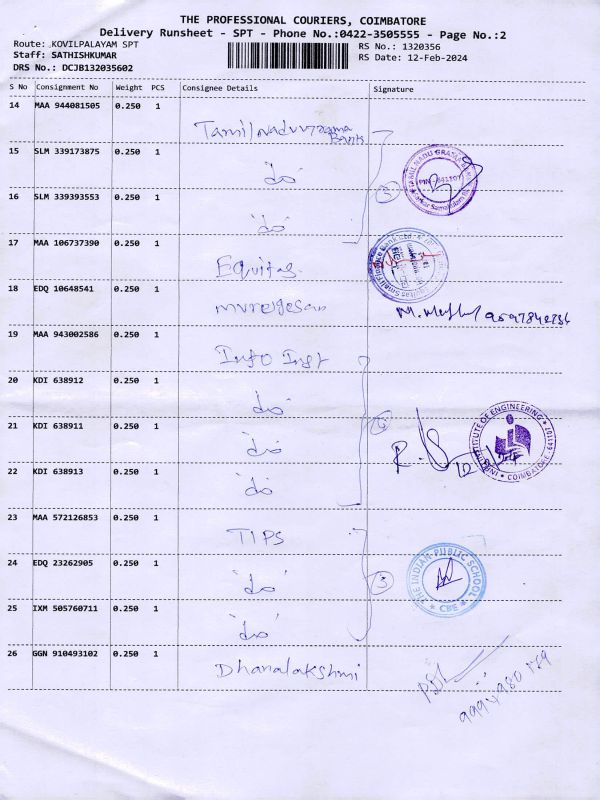 THE PROFESSIONAL COURIERS, COIMBATORE
Delivery Runsheet - SPT - Phone No.:0422-3505555 - Page No.:2
Route: KOVILPALAYAM SPT
Staff: SATHISHKUMAR
DRS No.: DCJB132035602
RS No.: 1320356
RS Date: 12-Feb-2024
S No Consignment No Weight PCS Consignee Details Signature
14 MAA 944081505 0.250 1 Tamil Nadu Grama Bank
15 SLM 339173875 0.250 1 "do"
3
16 SLM 339393553 0.250 1 "do"
17 MAA 106737390 0.250 1 Equitas
18 EDQ 10648541 0.250 1 murugesan
19 MAA 943002586 0.250 1 Info Inst
20 KDI 638912 0.250 1 "do"
21 KDI 638911 0.250 1 "do"
4
22 KDI 638913 0.250 1 "do"
INSTITUTE OF ENGINEERING
COIMBATORE - 641107
23 MAA 572126853 0.250 1 TIPS
24 EDQ 23262905 0.250 1 "do"
3
THE INDIAN PUBLIC SCHOOL
CBE
25 IXM 505760711 0.250 1 "do"
26 GGN 910493102 0.250 1 Dhanalakshmi